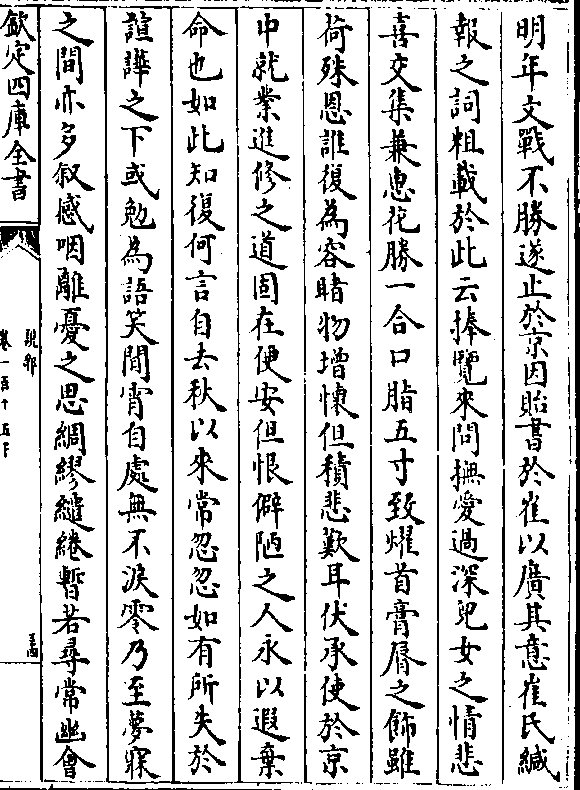 明年文戰不勝遂止於京因貽書於崔以廣其意崔氏緘
報之詞粗載於此云捧覽來問撫愛過深兒女之情悲
喜交集兼惠花勝一合口脂五寸致燿首膏脣之飾雖
荷殊恩誰復為容睹物增懷但積悲歎耳伏承便於京
中就業進修之道固在便安但恨僻陋之人永以遐棄
命也如此知復何言自去秋以來常忽忽如有所失於
諠譁之下或勉為語笑閒宵自處無不淚零乃至夢寐
之間亦多叙感咽離憂之思綢繆繾綣暫若尋常幽會
欽定四庫全書
說郛
卷一百十五下